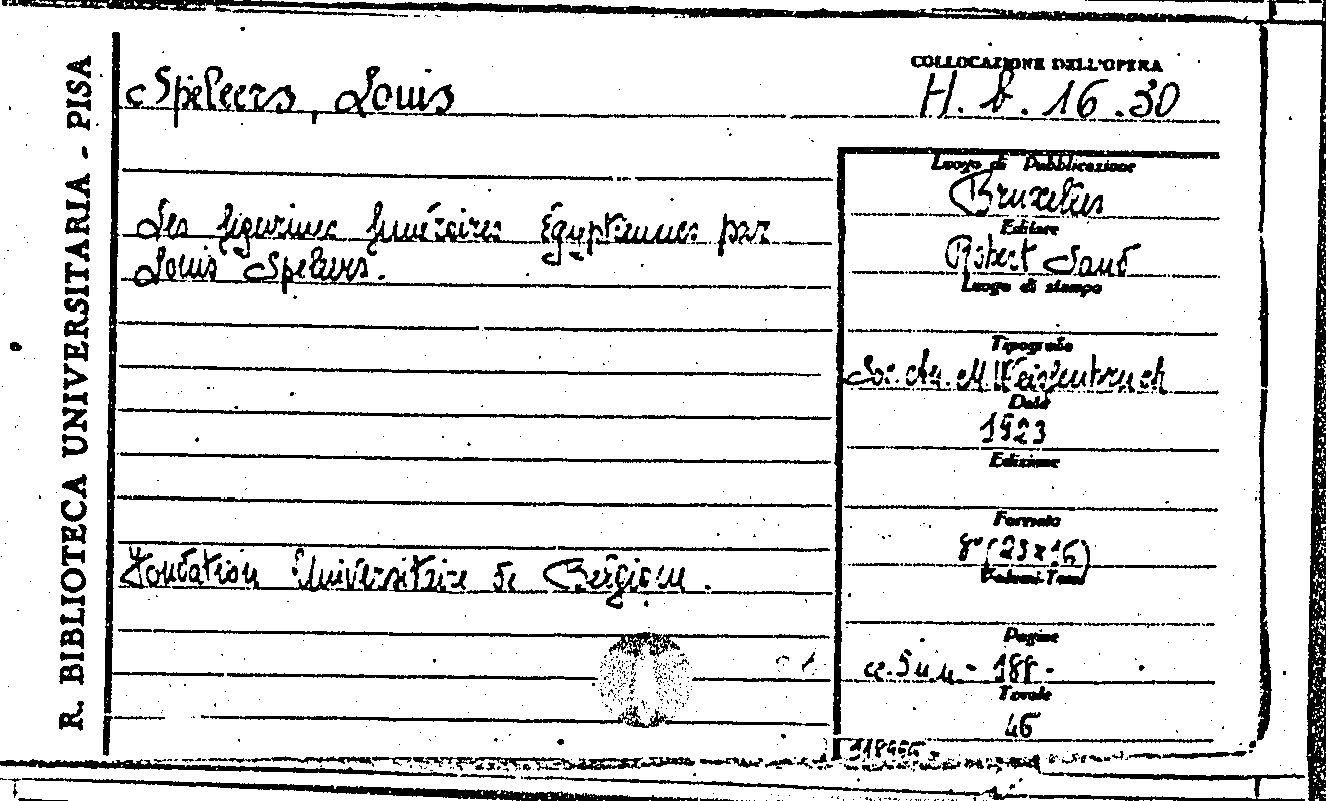 R. BIBLIOTECA UNIVERSITARIA - PISA
Speleers, Louis
COLLOCAZIONE DELL'OPERA
H. b. 16.30
Les figurines funéraires Égyptiennes par
Louis Speleers.
Fondation Universitaire de Belgique.
Luogo di Pubblicazione
Bruxelles
Editore
Robert Sand
Luogo di stampa
Tipografo
Soc. An. M. Weissenbruch
Data
1923
Edizione
Formato
8° (23x16)
Volumi-Tomi
Pagine
188 -
Tavole
46